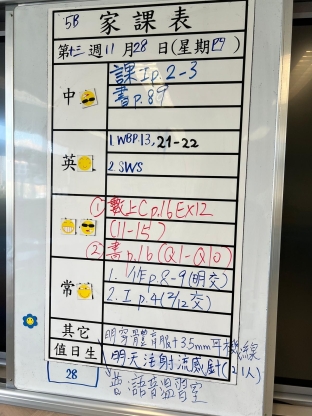 5B 家課表
第十三週11月28日(星期四)
中
課Ip.2-3
書p.89
英
1.WBP.13, 21-22
2.SWS
① 數上Cp.16Ex12
(11-15)
② 書p.16(Q1-Q10)
常
1. 作p.8-9(明交)
2. I p.4(2/12交)
其它
明穿體育服+3.5mm耳機線
值日生
明天注射流感針(21人)
28
普:語音溫習室